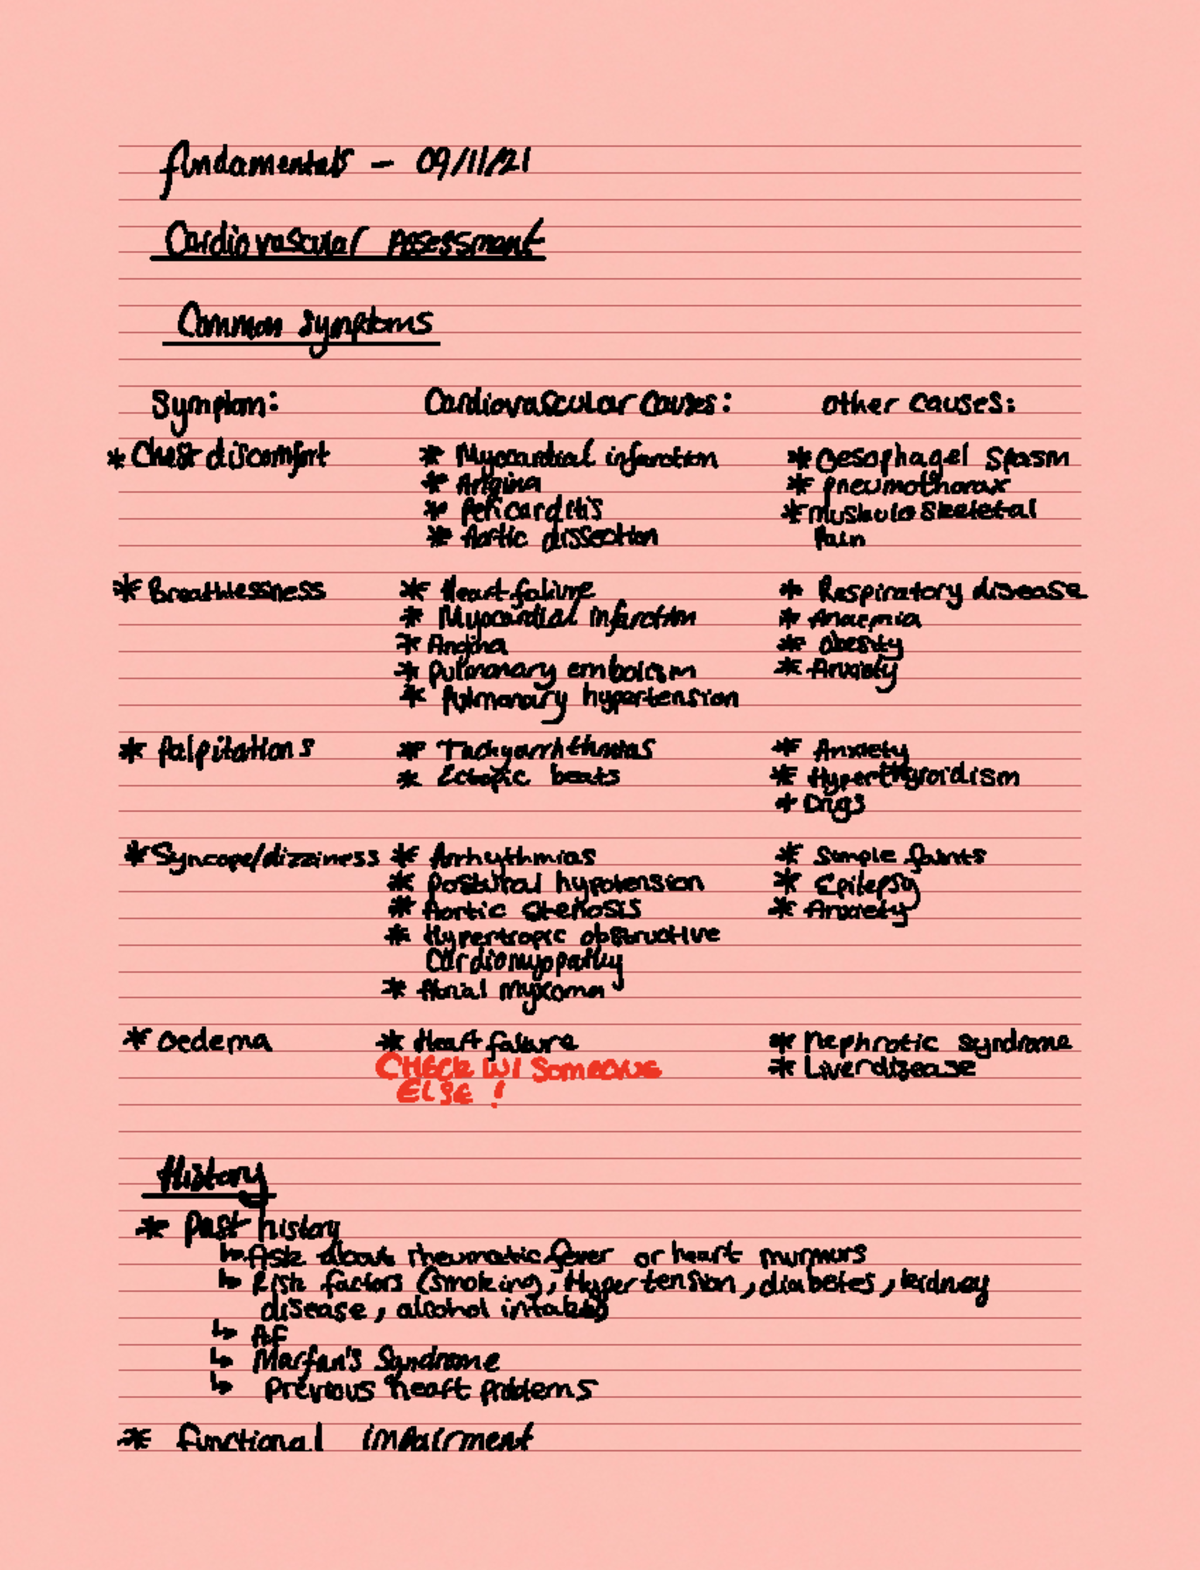 fundamentals - 09/11/21
Cardiovascular Assessment
Common Symptoms
Symptom: Cardiovascular Causes: other causes:
* Chest discomfort * Myocardial infarction * Oesophagel Spasm
* Angina * Pneumothorax
* Pericarditis * Muskulo Skeletal
* Aortic dissection Pain
* Breathlessness * Heart failure * Respiratory disease
* Myocardial infarction * Anaemia
* Angina * Obesity
* Pulmonary embolism * Anxiety
* Pulmonary hypertension
* Palpitations * Tachyarrhthmias * Anxiety
* Ectopic beats * Hyperthyroidism
* Drugs
* Syncope/dizziness * Arrhythmias * Simple faints
* Postural hypotension * Epilepsy
* Aortic Stenosis * Anxiety
* Hypertropic obstructive
Cardiomyopathy
* Atrial myxoma
* Oedema * Heart failure * Nephrotic syndrome
CHECK W/ SOMEONE * Liver disease
ELSE !
History
* Past history
↳ Ask about rheumatic fever or heart murmurs
↳ Risk factors (smoking, Hypertension, diabetes, kidney
disease, alcohol intake)
↳ AF
↳ Marfan's Syndrome
↳ Previous heart problems
* functional impairment